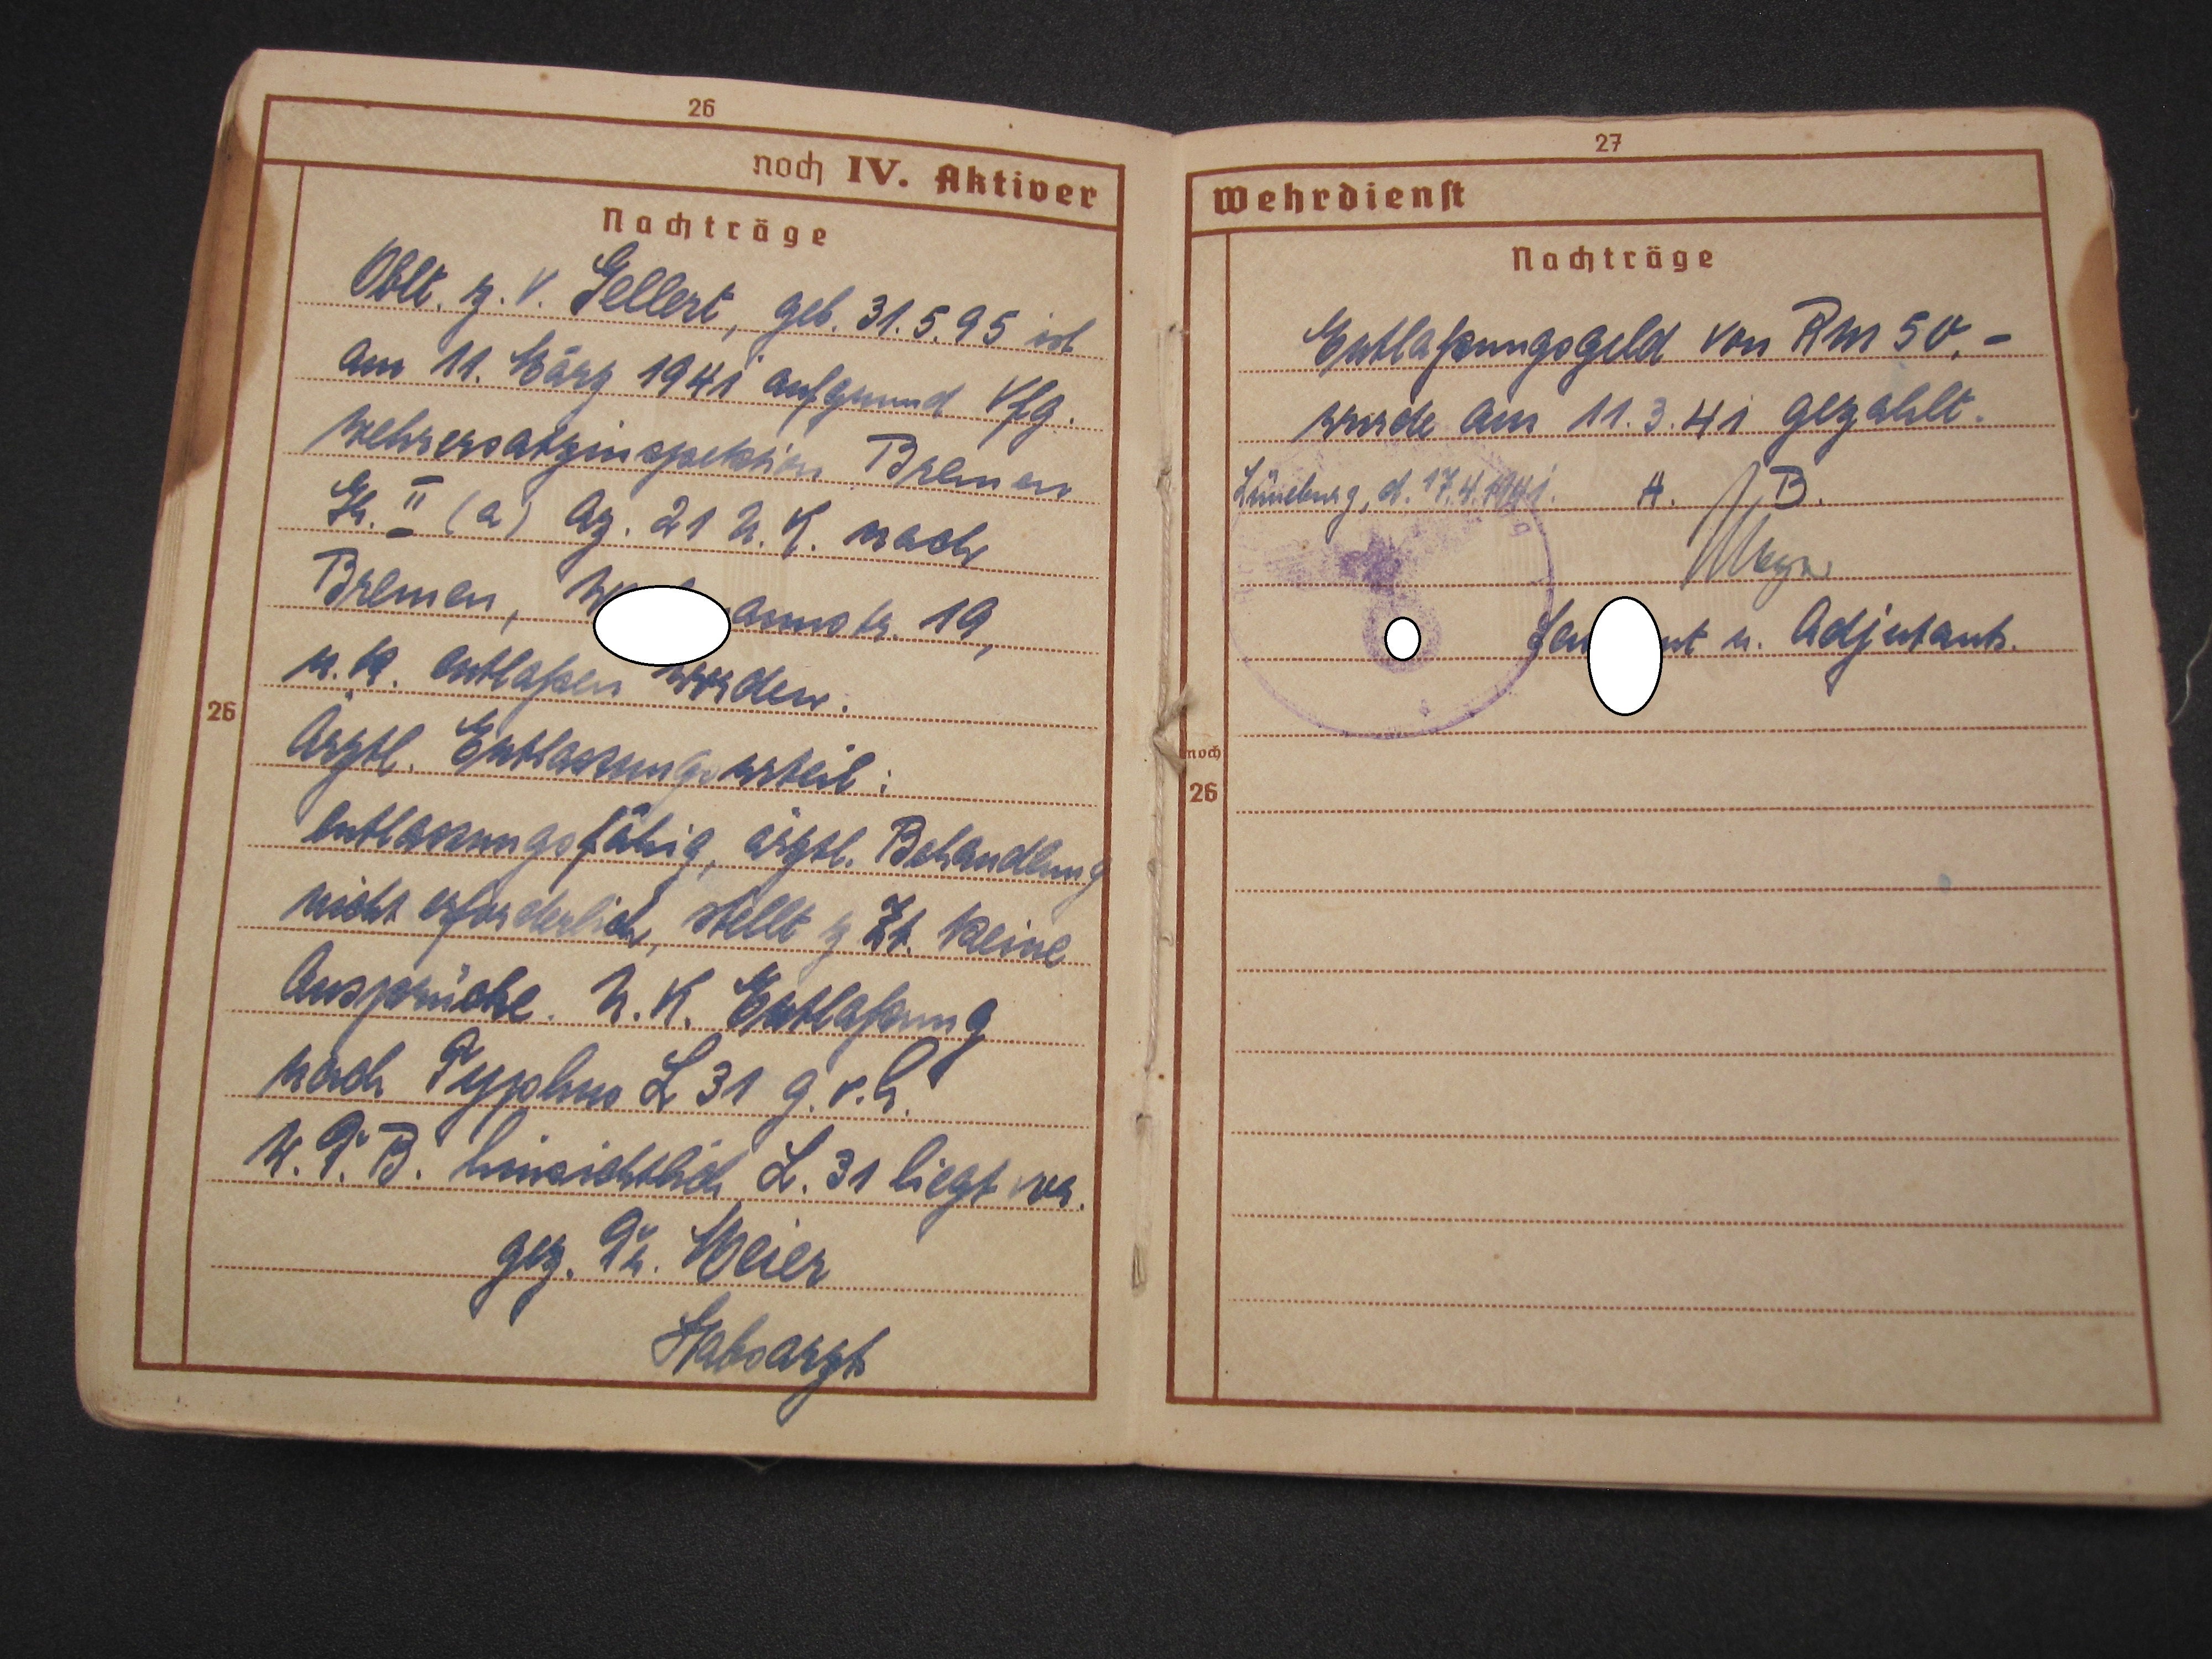 26
noch IV. Aktiver
Nachträge
Oblt. z. V. Gellert, geb. 31.5.95 ist
am 11. März 1941 aufgrund Vfg.
Wehrersatzinspektion Bremen
II (a) Az. 21 U. K. nach
Bremen, annstr. 19,
u. k. entlaßen worden.
26
Ärztl. Entlassungsurteil:
entlassungsfähig, ärztl. Behandlung
nicht erforderlich, stellt z Zt. keine
Ansprüche. U. K. Entlaßung
nach Typhus L 31 g. v. h.
W. D. B. hinsichtlich L. 31 liegt vor.
gez. Dr. Meier
Stabsarzt
27
Wehrdienst
Nachträge
Entlaßungsgeld von RM 50.-
wurde am 11.3.41 gezahlt.
Lüneburg, d. 17.4.1941. A. B.
Meyer
u. Adjutant.
noch
26